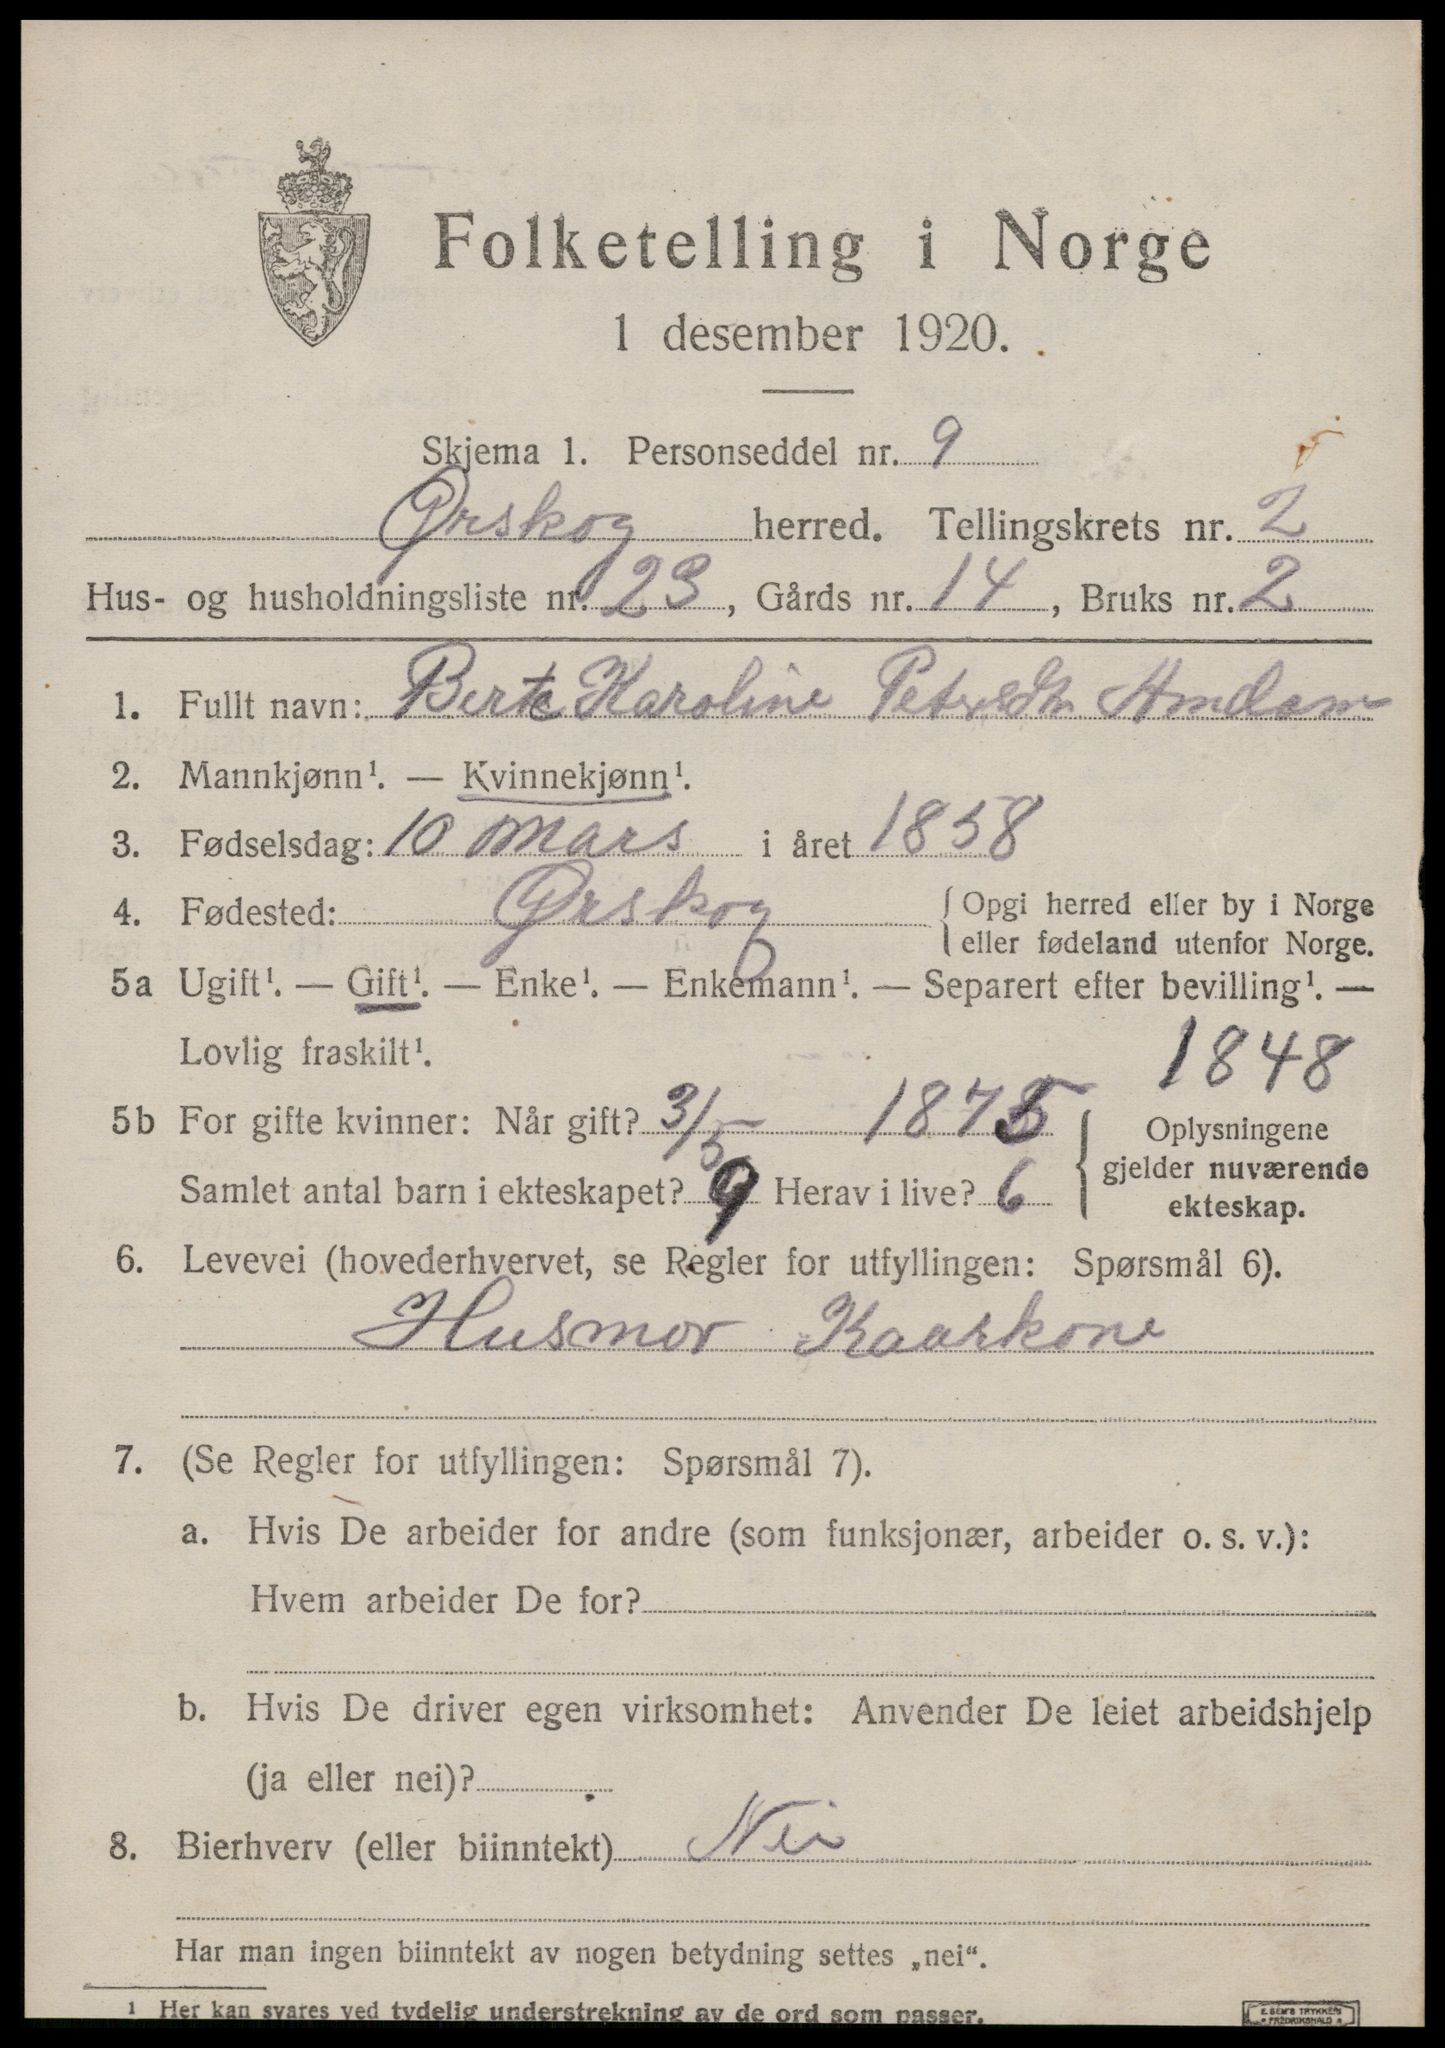 Folketelling i Norge
1 desember 1920.
Skjema 1. Personseddel nr. 9
Ørskog herred. Tellingskrets nr. 2
Hus- og husholdningsliste nr. 23, Gårds nr. 14, Bruks nr. 2
1. Fullt navn: Berte Karoline Petersdtr Amdam
2. Mannkjønn¹. — Kvinnekjønn¹.
3. Fødselsdag: 10 mars i året 1858
4. Fødested: Ørskog { Opgi herred eller by i Norge
eller fødeland utenfor Norge.
5a Ugift¹. — Gift¹. — Enke¹. — Enkemann¹. — Separert efter bevilling¹. —
Lovlig fraskilt¹.
1848
5b For gifte kvinner: Når gift? 3/5 1875
Samlet antal barn i ekteskapet? 9 Herav i live? 6
{ Oplysningene
gjelder nuværende
ekteskap.
6. Levevei (hovederhvervet, se Regler for utfyllingen: Spørsmål 6).
Husmor Kaarkone
7. (Se Regler for utfyllingen: Spørsmål 7).
a. Hvis De arbeider for andre (som funksjonær, arbeider o. s. v.):
Hvem arbeider De for?
b. Hvis De driver egen virksomhet: Anvender De leiet arbeidshjelp
(ja eller nei)?
8. Bierhverv (eller biinntekt) Nei
Har man ingen biinntekt av nogen betydning settes „nei“.
¹ Her kan svares ved tydelig understrekning av de ord som passer.
E. SEM'S TRYKKERI
FREDRIKSHALD